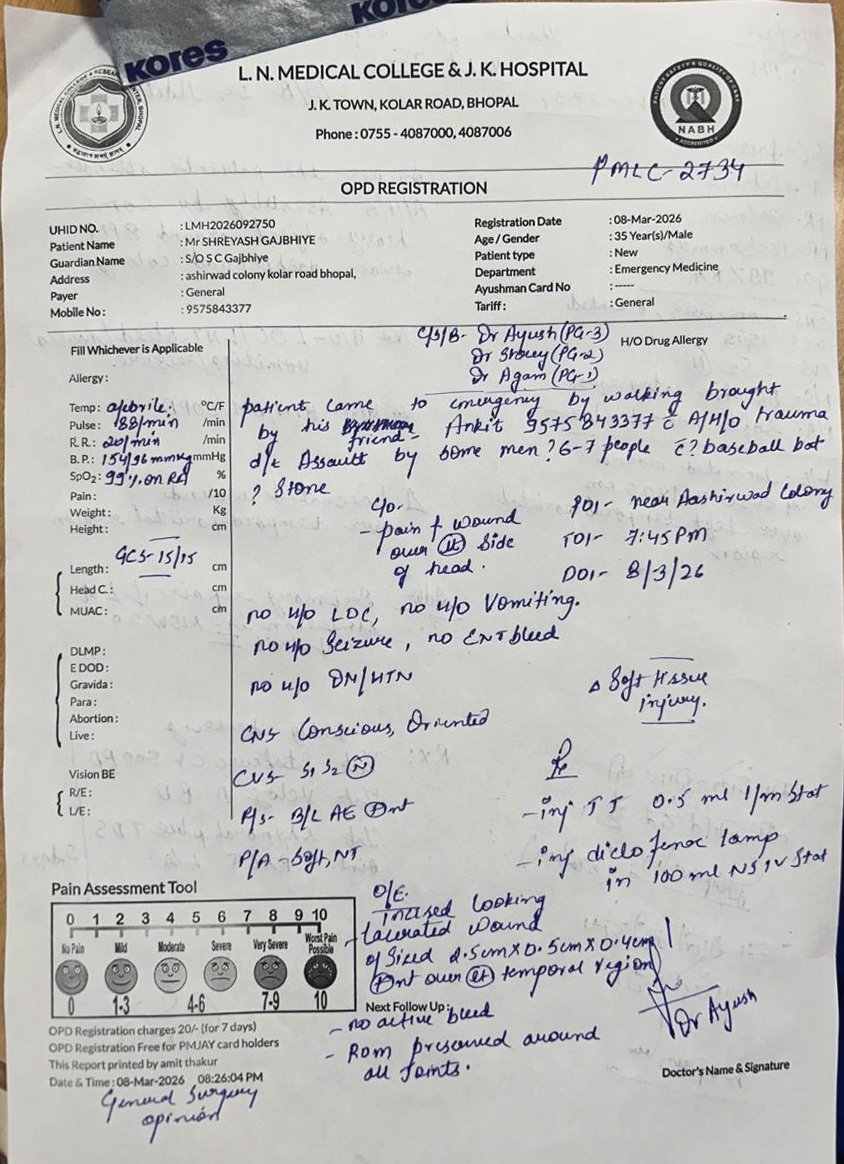 Kores
Kores
L. N. MEDICAL COLLEGE & J. K. HOSPITAL
J. K. TOWN, KOLAR ROAD, BHOPAL
Phone : 0755 - 4087000, 4087006
NABH
PMLC-2734
OPD REGISTRATION
UHID NO. : LMH2026092750
Patient Name : Mr SHREYASH GAJBHIYE
Guardian Name : S/O S C Gajbhiye
Address : ashirwad colony kolar road bhopal,
Payer : General
Mobile No : : 9575843377
Registration Date : 08-Mar-2026
Age / Gender : 35 Year(s)/Male
Patient type : New
Department : Emergency Medicine
Ayushman Card No : -----
Tariff : : General
C/S/B- Dr Ayush (PG-3)
Dr (PG-2)
Dr Agam (PG-1)
H/O Drug Allergy
Fill Whichever is Applicable
Allergy :
Temp : afebrile. °C/F
Pulse : 88/min /min
R. R. : 20/min /min
B. P. : 154/96 mmHg mmHg
SpO2 : 99% on RA %
Pain : /10
Weight : Kg
Height : cm
GCS- 15/15
Length : cm
Head C. : cm
MUAC : cm
DLMP :
EDOD :
Gravida :
Para :
Abortion :
Live :
Vision BE
R/E :
L/E :
patient came to emergency by walking brought
by his friend- Ankit 9575843377 c̄ A/H/O trauma
d/t Assault by some men ? 6-7 people c̄ ? baseball bat
? Stone
C/O-
- pain + wound
over (Lt) side
of head.
POI- near Aashirwad Colony
TOI- 7:45 PM
DOI- 8/3/26
no H/O LOC, no H/O Vomiting.
no H/O Seizure, no ENT bleed
no H/O DM/HTN
CNS- Conscious, Oriented
CVS- S1 S2 (N)
P/S- B/L AE (P)nt
P/A - Soft, NT
Δ Soft tissue
injury.
Rx
- inj TT 0.5 ml I/M Stat
- inj diclofenac 1amp
in 100 ml NS IV Stat
O/E.
Incised looking
- lacerated wound
of sized 2.5cm X 0.5cm X 0.4cm
(P)nt over (Lt) temporal region
- no active bleed
- ROM preserved around
all Joints.
Pain Assessment Tool
0 1 2 3 4 5 6 7 8 9 10
No Pain Mild Moderate Severe Very Severe Worst Pain Possible
0 1-3 4-6 7-9 10
Next Follow Up :
Dr Ayush
Doctor's Name & Signature
OPD Registration charges 20/- (for 7 days)
OPD Registration Free for PMJAY card holders
This Report printed by amit thakur
Date & Time : 08-Mar-2026 08:26:04 PM
General Surgery
opinion